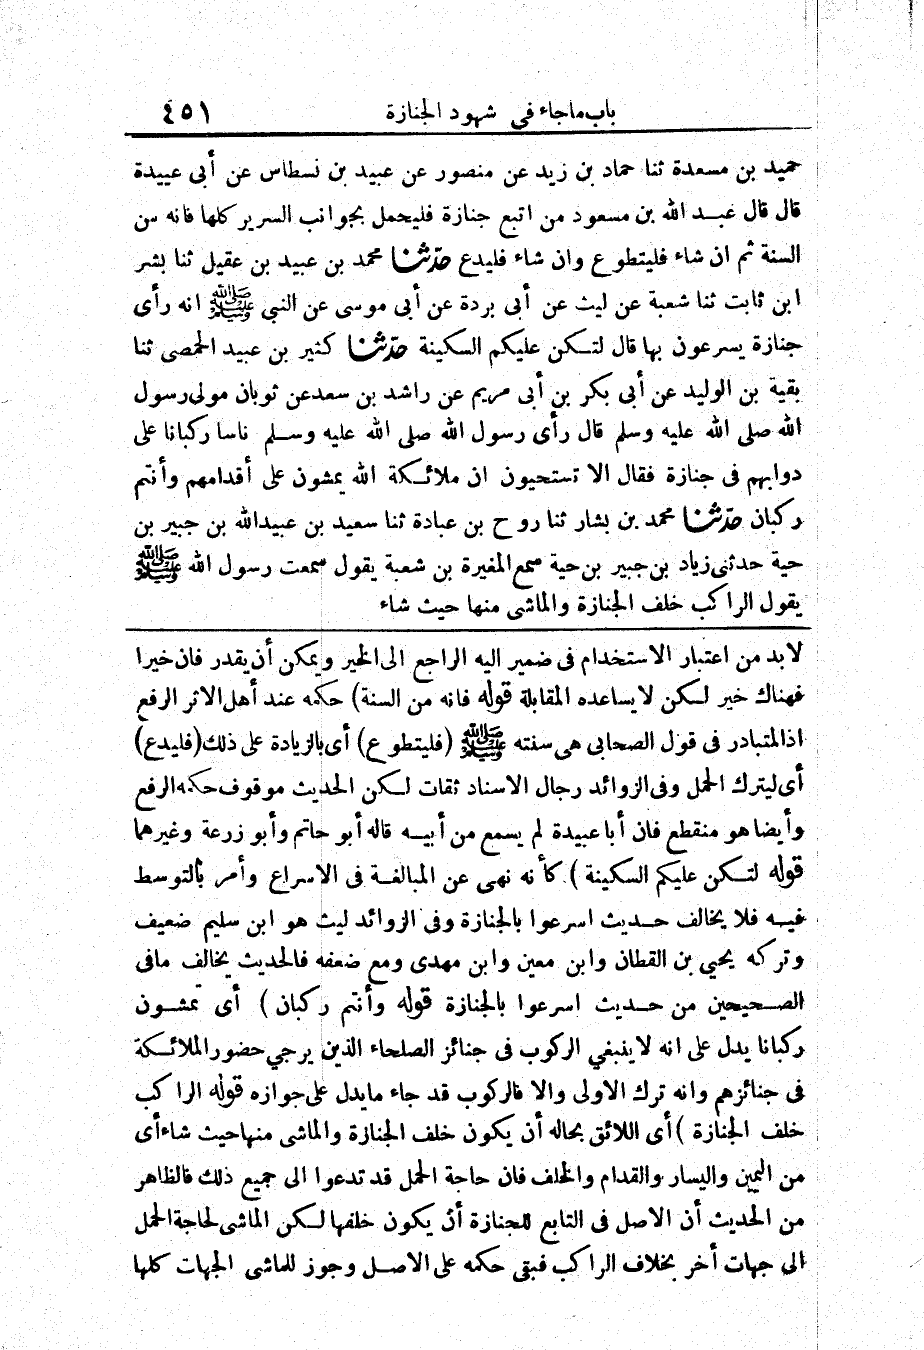 باب ماجاء في شهود الجنازة ٤٥١
حميد بن مسعدة ثنا حماد بن زيد عن منصور عن عبيد بن نسطاس عن أبى عبيدة
قال قال عبد الله بن مسعود من اتبع جنازة فليحمل بجوانب السرير كلها فانه من
السنة ثم ان شاء فليتطوع وان شاء فليدع حدثنا محمد بن عبيد بن عقيل ثنا بشر
ابن ثابت ثنا شعبة عن ليث عن أبى بردة عن أبى موسى عن النبي ﷺ انه رأى
جنازة يسرعون بها قال لتكن عليكم السكينة حدثنا كثير بن عبيد الحمصى ثنا
بقية بن الوليد عن أبى بكر بن أبى مريم عن راشد بن سعد عن ثوبان مولى رسول
الله صلى الله عليه وسلم قال رأى رسول الله صلى الله عليه وسلم ناسا ركبانا على
دوابهم فى جنازة فقال الا تستحيون ان ملائكة الله يمشون على أقدامهم وأنتم
ركبان حدثنا محمد بن بشار ثنا روح بن عبادة ثنا سعيد بن عبيدالله بن جبير بن
حية حدثنى زياد بن جبير بن حية سمع المغيرة بن شعبة يقول سمعت رسول الله ﷺ
يقول الراكب خلف الجنازة والماشى منها حيث شاء
لابد من اعتبار الاستخدام فى ضمير اليه الراجع الى الخير ويمكن أن يقدر فان خيرا
فهناك خير لكن لا يساعده المقابلة قوله فانه من السنة) حكمه عند أهل الاثر الرفع
اذ المتبادر فى قول الصحابى هى سنته ﷺ (فليتطوع) أى بالزيادة على ذلك (فليدع)
أى ليترك الحمل وفى الزوائد رجال الاسناد ثقات لكن الحديث موقوف حكمه الرفع
وأيضا هو منقطع فان أبا عبيدة لم يسمع من أبيه قاله أبو حاتم وأبو زرعة وغيرهما
قوله لتكن عليكم السكينة) كأنه نهى عن المبالغة فى الاسراع وأمر بالتوسط
فيه فلا يخالف حديث اسرعوا بالجنازة وفى الزوائد ليث هو ابن سليم ضعيف
وتركه يحيى بن القطان وابن معين وابن مهدى ومع ضعفه فالحديث يخالف مافى
الصحيحين من حديث اسرعوا بالجنازة قوله وأنتم ركبان) أى تمشون
ركبانا يدل على انه لا ينبغي الركوب فى جنائز الصلحاء الذين يرجي حضور الملائكة
فى جنائزهم وانه ترك الاولى والا فالركوب قد جاء مايدل على جوازه قوله الراكب
خلف الجنازة) أى اللائق بحاله أن يكون خلف الجنازة والماشى منها حيث شاء أى
من اليمين واليسار والقدام والخلف فان حاجة الحمل قد تدعوا الى جميع ذلك فالظاهر
من الحديث أن الاصل فى التابع للجنازة أن يكون خلفها لكن الماشى لحاجة الحمل
الى جهات أخر بخلاف الراكب فبقى حكمه على الاصل وجوز للماشى الجهات كلها